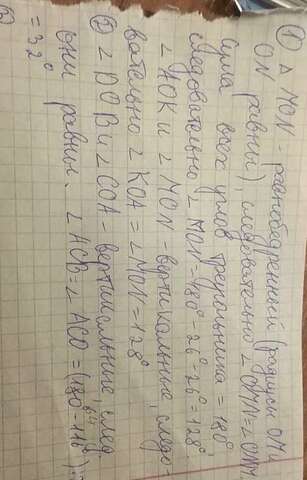 ① △ MON - равнобедренный (радиусы OM и
ON равны), следовательно ∠OMN=∠ONM
Сума всех углов треугольника = 180°,
следовательно ∠MON=180°-26°-26°=128°,
∠AOK и ∠MON - вертикальные, следо-
вательно ∠KOA=∠MON=128°
② ∠DOB и ∠COA - вертикальные, след.
они равны. ∠ACB=∠ACO=(180°-116°):
=32°